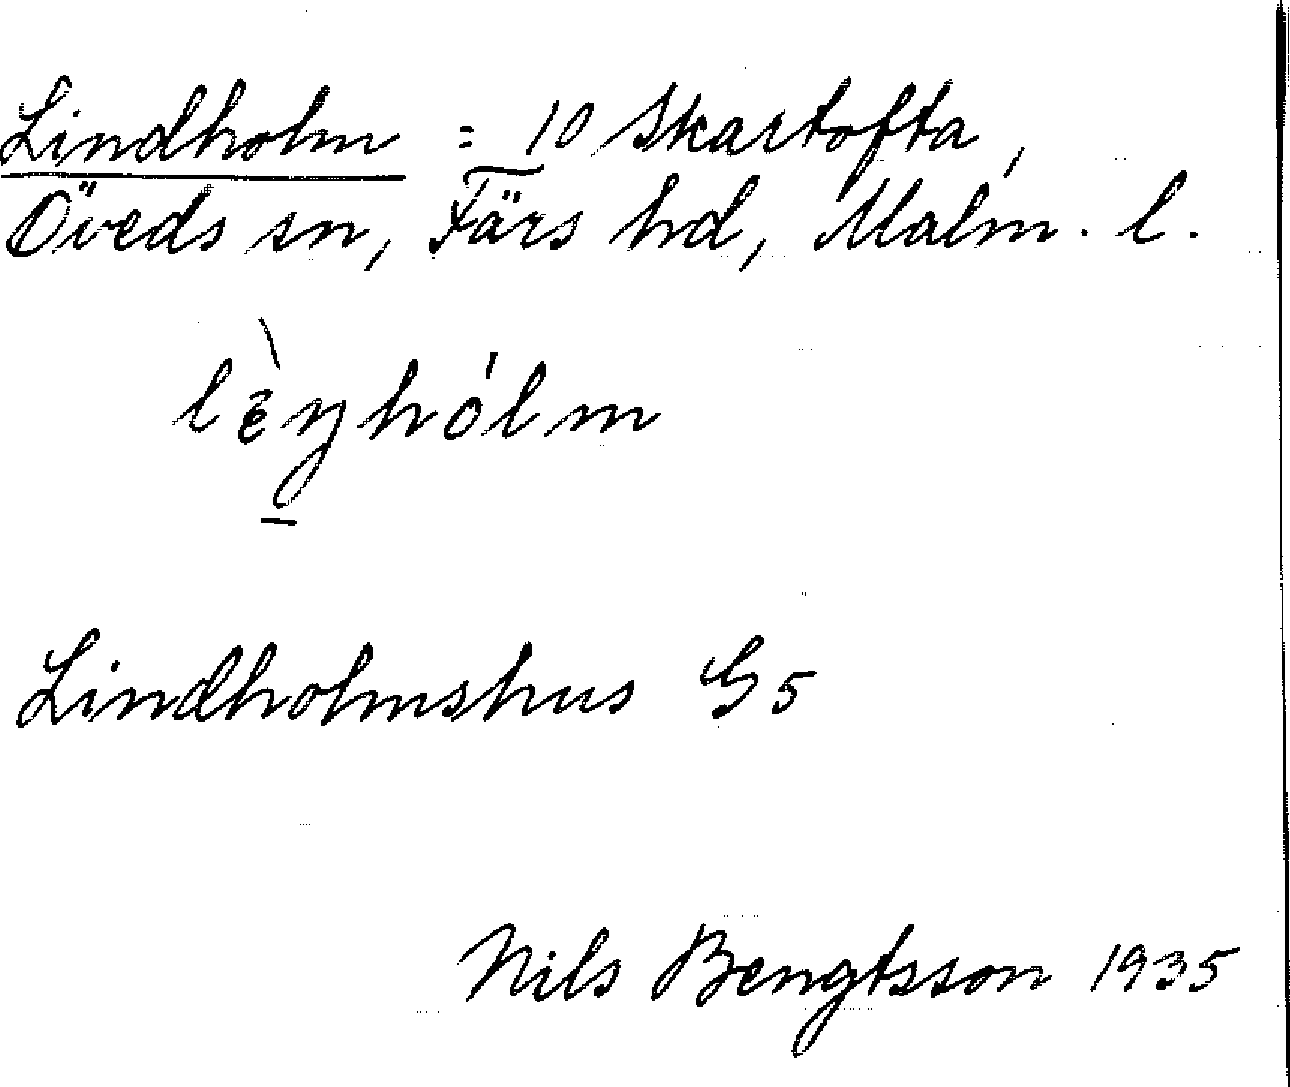 Lindholm = 10 Skartofta,
Öveds sn, Färs hd, Malm. l.
lèŋhólm
Lindholmshus G5
Nils Bengtsson 1935